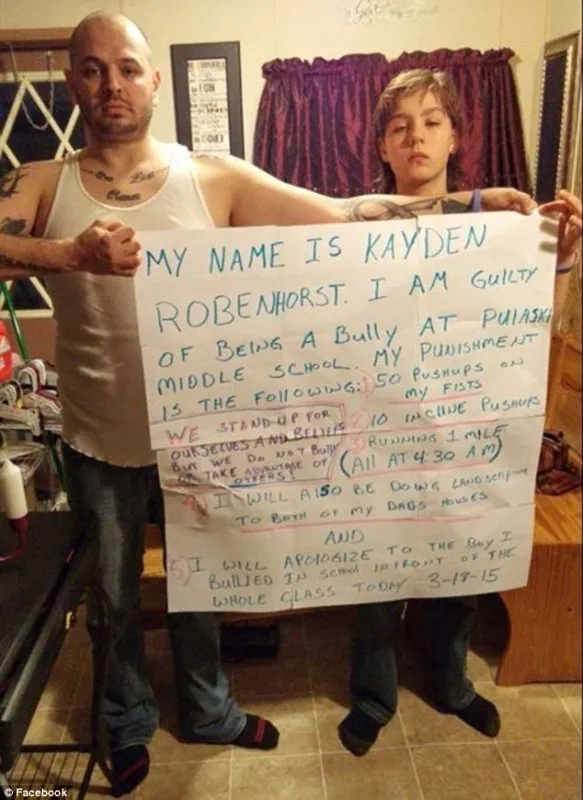 MY NAME IS KAYDEN
ROBENHORST. I AM GUILTY
OF BEING A BULLY AT PULASKI
MIDDLE SCHOOL. MY PUNISHMENT
IS THE FOLLOWING: 1) 50 PUSHUPS ON
MY FISTS
WE STAND UP FOR
OURSELVES AND BELIEFS
BUT WE DO NOT BULLY
OR TAKE ADVANTAGE OF
OTHERS!
2) 10 INCLINE PUSHUPS
3) RUNNING 1 MILE
(All AT 4:30 A.M)
4) I WILL AlSO BE DOING LANDSCAPING
TO BOTH OF MY DADS HOUSES
AND
5) I WILL APOLOGIZE TO THE BOY I
BULLIED IN SCHOOL IN FRONT OF THE
WHOLE CLASS TODAY 3-18-15
© Facebook